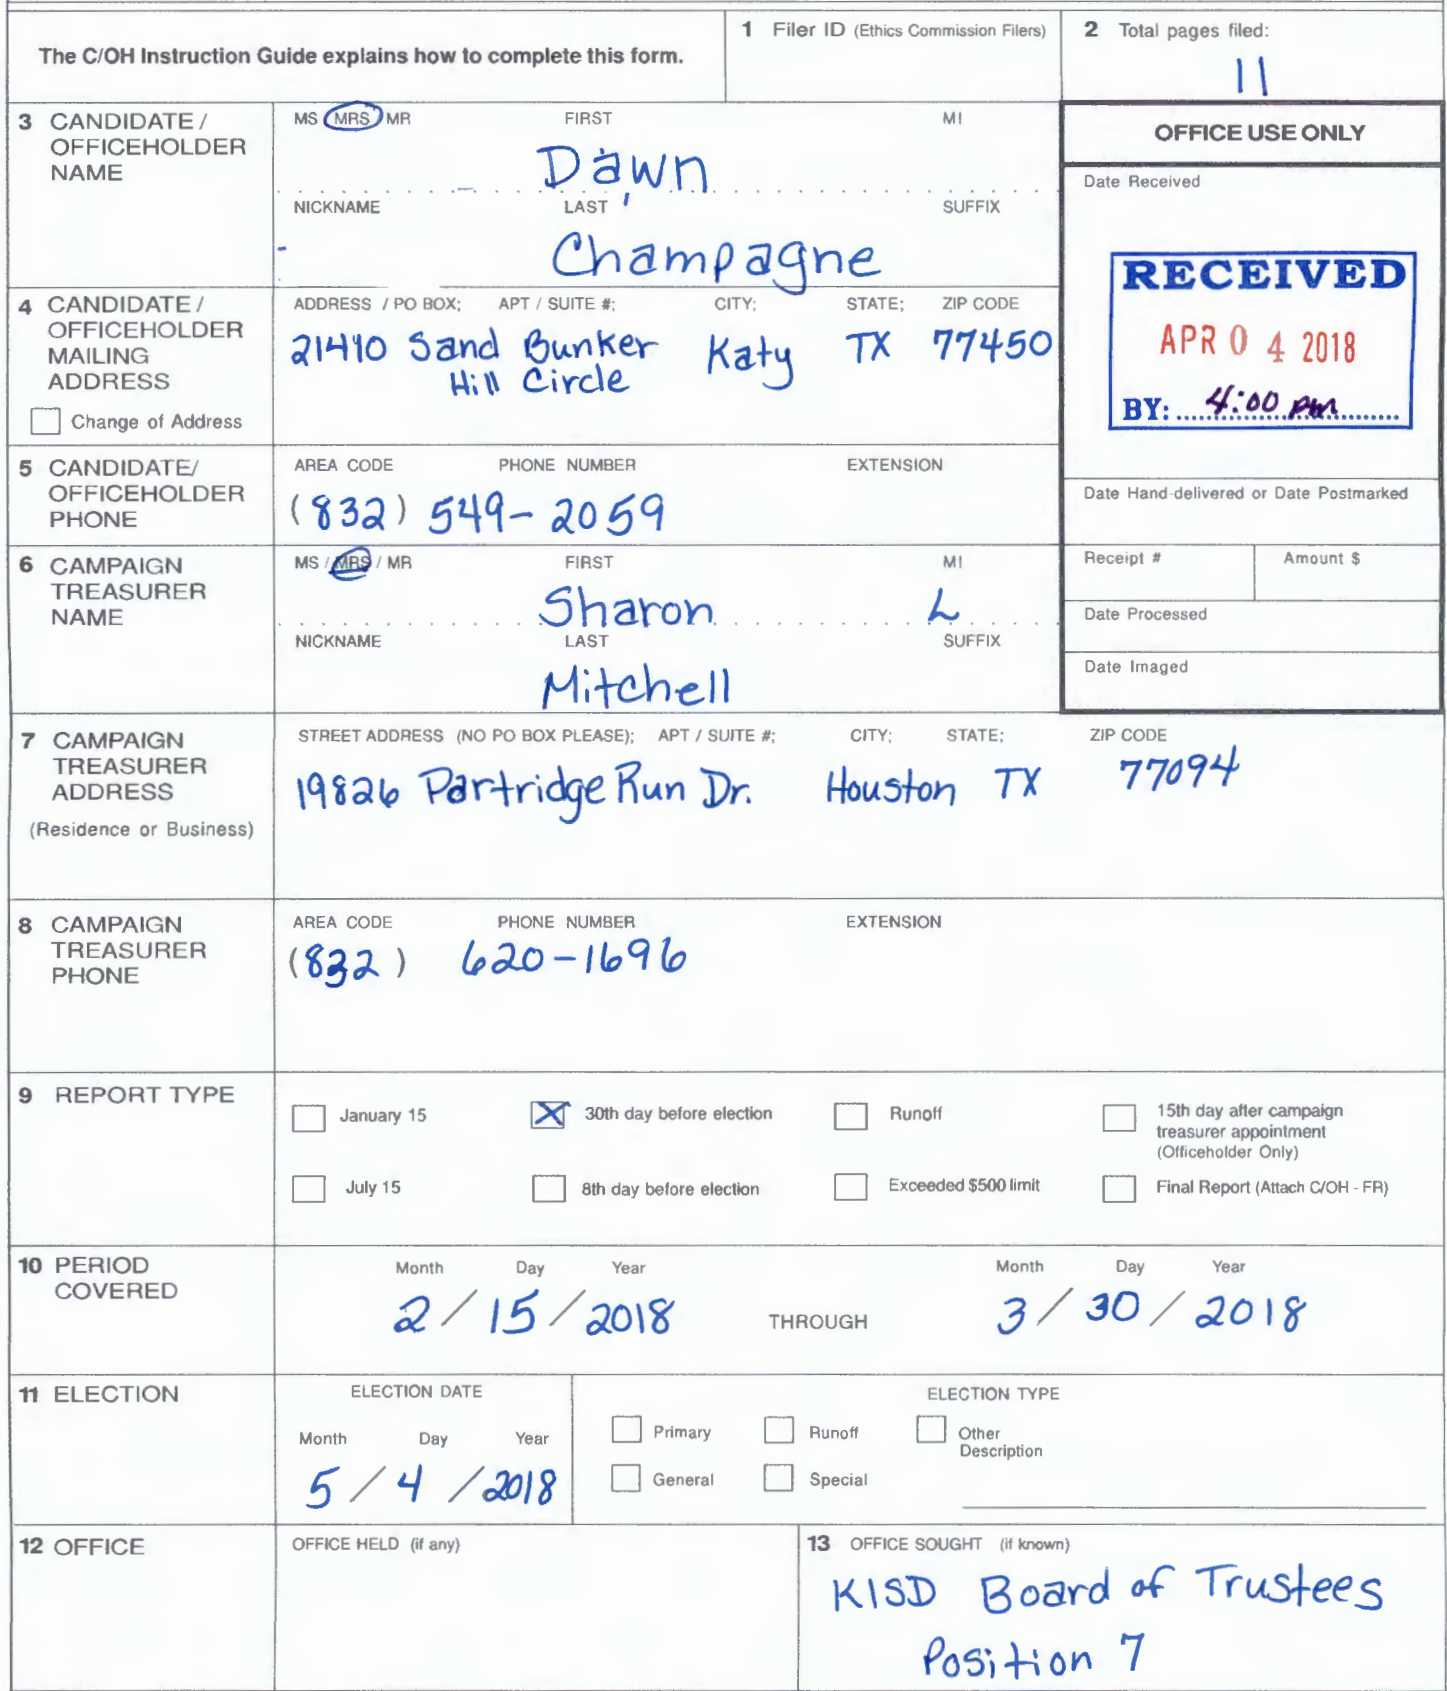 The C/OH Instruction Guide explains how to complete this form.
1 Filer ID (Ethics Commission Filers)
2 Total pages filed:
11
3 CANDIDATE / OFFICEHOLDER NAME
MS MRS MR FIRST MI
Dawn
NICKNAME LAST SUFFIX
Champagne
OFFICE USE ONLY
Date Received
RECEIVED
APR 04 2018
BY: 4:00 pm
4 CANDIDATE / OFFICEHOLDER MAILING ADDRESS
Change of Address
ADDRESS / PO BOX; APT / SUITE #; CITY; STATE; ZIP CODE
21410 Sand Bunker Katy TX 77450
Hill Circle
5 CANDIDATE/ OFFICEHOLDER PHONE
AREA CODE PHONE NUMBER EXTENSION
(832) 549-2059
Date Hand-delivered or Date Postmarked
6 CAMPAIGN TREASURER NAME
MS / MRS / MR FIRST MI
Sharon L
NICKNAME LAST SUFFIX
Mitchell
Receipt # Amount $
Date Processed
Date Imaged
7 CAMPAIGN TREASURER ADDRESS
(Residence or Business)
STREET ADDRESS (NO PO BOX PLEASE); APT / SUITE #; CITY; STATE; ZIP CODE
19826 Partridge Run Dr. Houston TX 77094
8 CAMPAIGN TREASURER PHONE
AREA CODE PHONE NUMBER EXTENSION
(832) 620-1696
9 REPORT TYPE
January 15 30th day before election Runoff 15th day after campaign treasurer appointment (Officeholder Only)
July 15 8th day before election Exceeded $500 limit Final Report (Attach C/OH - FR)
10 PERIOD COVERED
Month Day Year Month Day Year
2 / 15 / 2018 THROUGH 3 / 30 / 2018
11 ELECTION
ELECTION DATE
Month Day Year
5 / 4 / 2018
ELECTION TYPE
Primary Runoff Other Description
General Special
12 OFFICE
OFFICE HELD (if any)
13 OFFICE SOUGHT (if known)
KISD Board of Trustees
Position 7